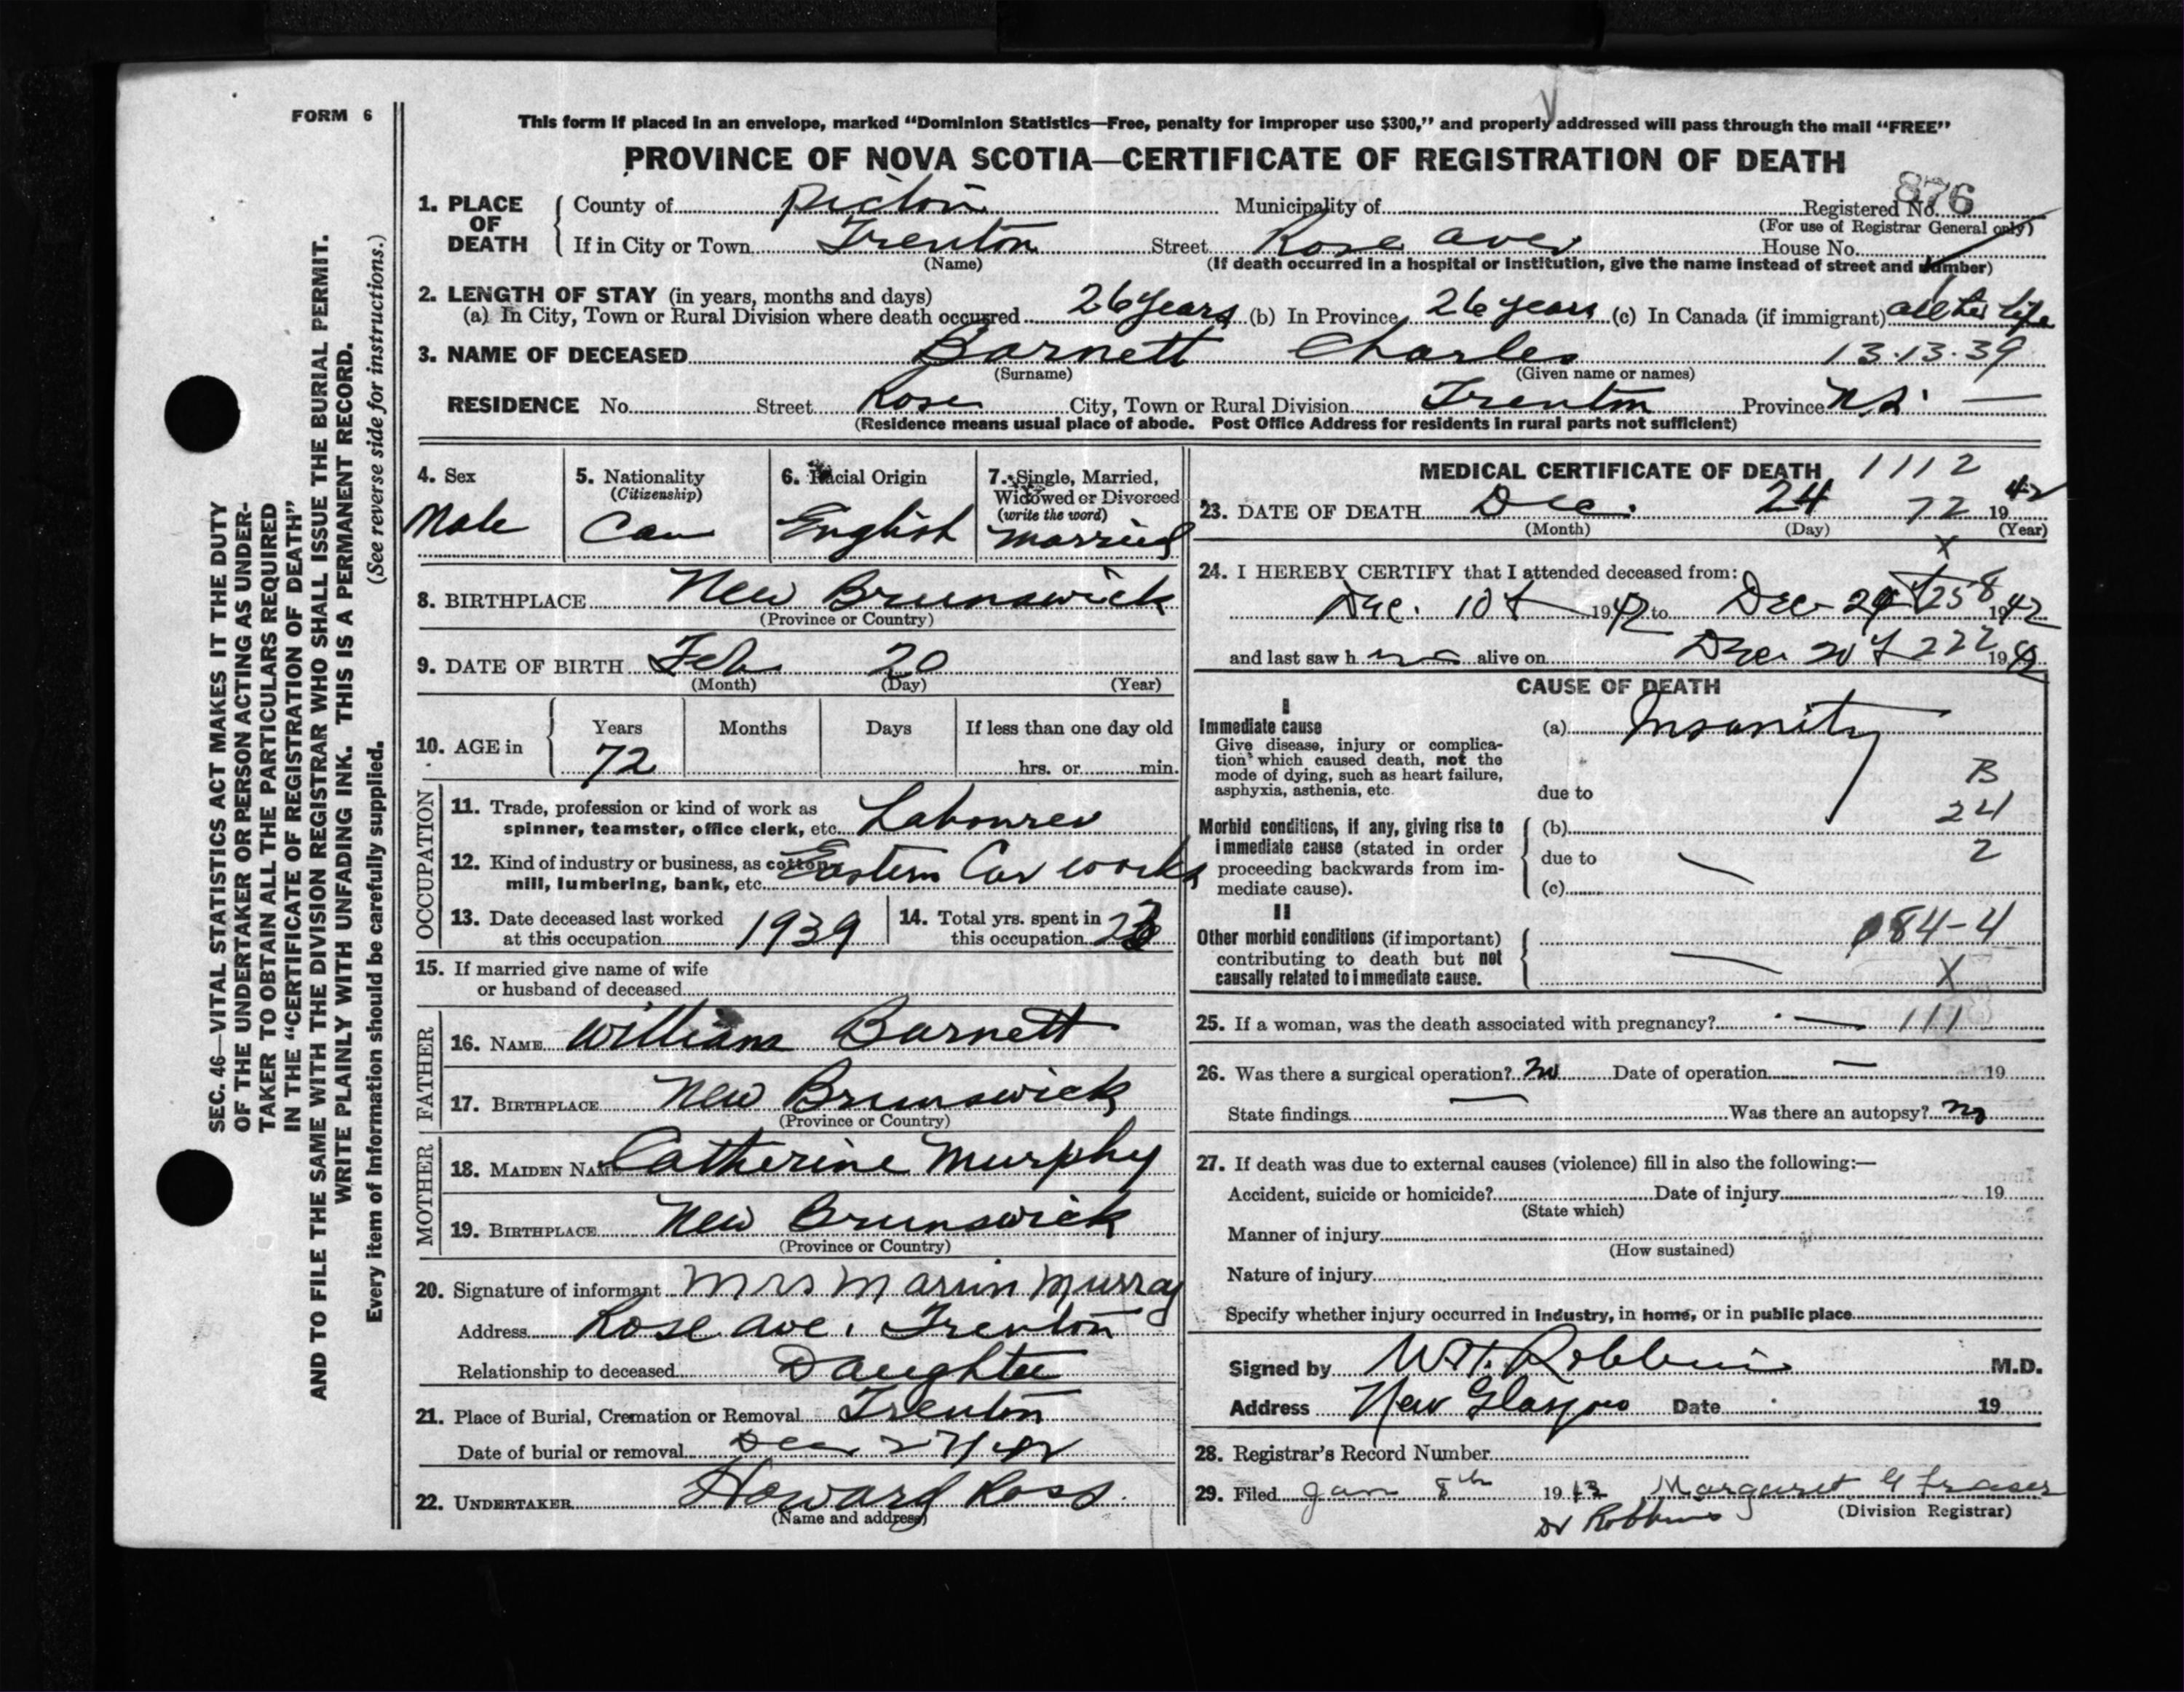 FORM 6
This form if placed in an envelope, marked “Dominion Statistics—Free, penalty for improper use $300,” and properly addressed will pass through the mail “FREE”
PROVINCE OF NOVA SCOTIA—CERTIFICATE OF REGISTRATION OF DEATH
876
1. PLACE OF DEATH County of Pictou Municipality of Registered No.
(For use of Registrar General only)
If in City or Town Trenton Street Rose Ave. House No.
(Name) (If death occurred in a hospital or institution, give the name instead of street and number)
2. LENGTH OF STAY (in years, months and days)
(a) In City, Town or Rural Division where death occurred 26 years (b) In Province 26 years (c) In Canada (if immigrant) all his life
3. NAME OF DECEASED Barnett Charles 13.13.39
(Surname) (Given name or names)
RESIDENCE No. Street Rose City, Town or Rural Division Trenton Province N.S.
(Residence means usual place of abode. Post Office Address for residents in rural parts not sufficient)
4. Sex Male
5. Nationality (Citizenship) Can
6. Racial Origin English
7. Single, Married, Widowed or Divorced (write the word) Married
8. BIRTHPLACE New Brunswick
(Province or Country)
9. DATE OF BIRTH Feb 20
(Month) (Day) (Year)
10. AGE in Years Months Days If less than one day old
72 hrs. or min.
OCCUPATION
11. Trade, profession or kind of work as
spinner, teamster, office clerk, etc. Labourer
12. Kind of industry or business, as cotton
mill, lumbering, bank, etc. Eastern Car works
13. Date deceased last worked
at this occupation 1939
14. Total yrs. spent in
this occupation
15. If married give name of wife
or husband of deceased
FATHER
16. NAME William Barnett
17. BIRTHPLACE New Brunswick
(Province or Country)
MOTHER
18. MAIDEN NAME Catherine Murphy
19. BIRTHPLACE New Brunswick
(Province or Country)
20. Signature of informant Mrs Marvin Murray
Address Rose Ave. Trenton
Relationship to deceased Daughter
21. Place of Burial, Cremation or Removal Trenton
Date of burial or removal Dec 27/42
22. UNDERTAKER Howard Ross.
(Name and address)
MEDICAL CERTIFICATE OF DEATH 1112
23. DATE OF DEATH Dec. 24 72 1942
(Month) (Day) (Year)
X
24. I HEREBY CERTIFY that I attended deceased from:
Dec. 10 1942 to Dec 258 1942
and last saw h alive on Dec 20 222 1942
CAUSE OF DEATH
I
Immediate cause
Give disease, injury or complica-
tion which caused death, not the
mode of dying, such as heart failure,
asphyxia, asthenia, etc.
(a) Insanity
B
due to
24
Morbid conditions, if any, giving rise to
immediate cause (stated in order
proceeding backwards from im-
mediate cause).
(b)
due to 2
(c)
II
Other morbid conditions (if important)
contributing to death but not
causally related to immediate cause.
084-4
X
25. If a woman, was the death associated with pregnancy? — 111
26. Was there a surgical operation? no Date of operation — 19
State findings — Was there an autopsy? no
27. If death was due to external causes (violence) fill in also the following:—
Accident, suicide or homicide? Date of injury 19
(State which)
Manner of injury
(How sustained)
Nature of injury
Specify whether injury occurred in Industry, in home, or in public place
Signed by Robbins M.D.
Address New Glasgow Date 19
28. Registrar's Record Number
29. Filed Jan 8th 1943 Margaret G Fraser
Dr Robbins (Division Registrar)
SEC. 46—VITAL STATISTICS ACT MAKES IT THE DUTY
OF THE UNDERTAKER OR PERSON ACTING AS UNDER-
TAKER TO OBTAIN ALL THE PARTICULARS REQUIRED
IN THE “CERTIFICATE OF REGISTRATION OF DEATH”
AND TO FILE THE SAME WITH THE DIVISION REGISTRAR WHO SHALL ISSUE THE BURIAL PERMIT.
WRITE PLAINLY WITH UNFADING INK. THIS IS A PERMANENT RECORD.
Every item of Information should be carefully supplied. (See reverse side for instructions.)